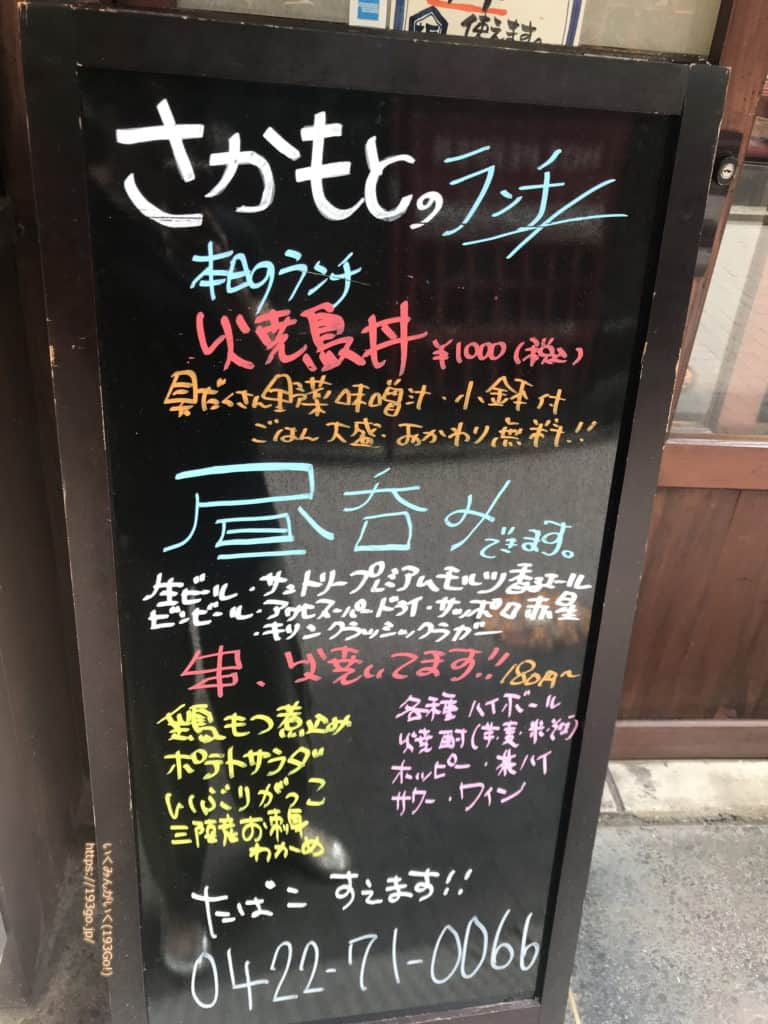 使えます。
さかもとのランチ
本日のランチ
焼鳥丼 ¥1000(税込)
具だくさん野菜味噌汁・小鉢付
ごはん大盛・おかわり無料!!
昼呑みできます。
生ビール・サントリープレミアムモルツ香るエール
ビンビール・アサヒスーパードライ・サッポロ赤星
・キリンクラッシックラガー
串、焼いてます!! 180円~
鶏もつ煮込み
ポテトサラダ
いぶりがっこ
三陸産お刺身
わかめ
各種ハイボール
焼酎(芋・麦・米・そば)
ホッピー・酎ハイ
サワー・ワイン
たばこ すえます!!
0422-71-0066
いくみんがいく(193Go!)
https://193go.jp/